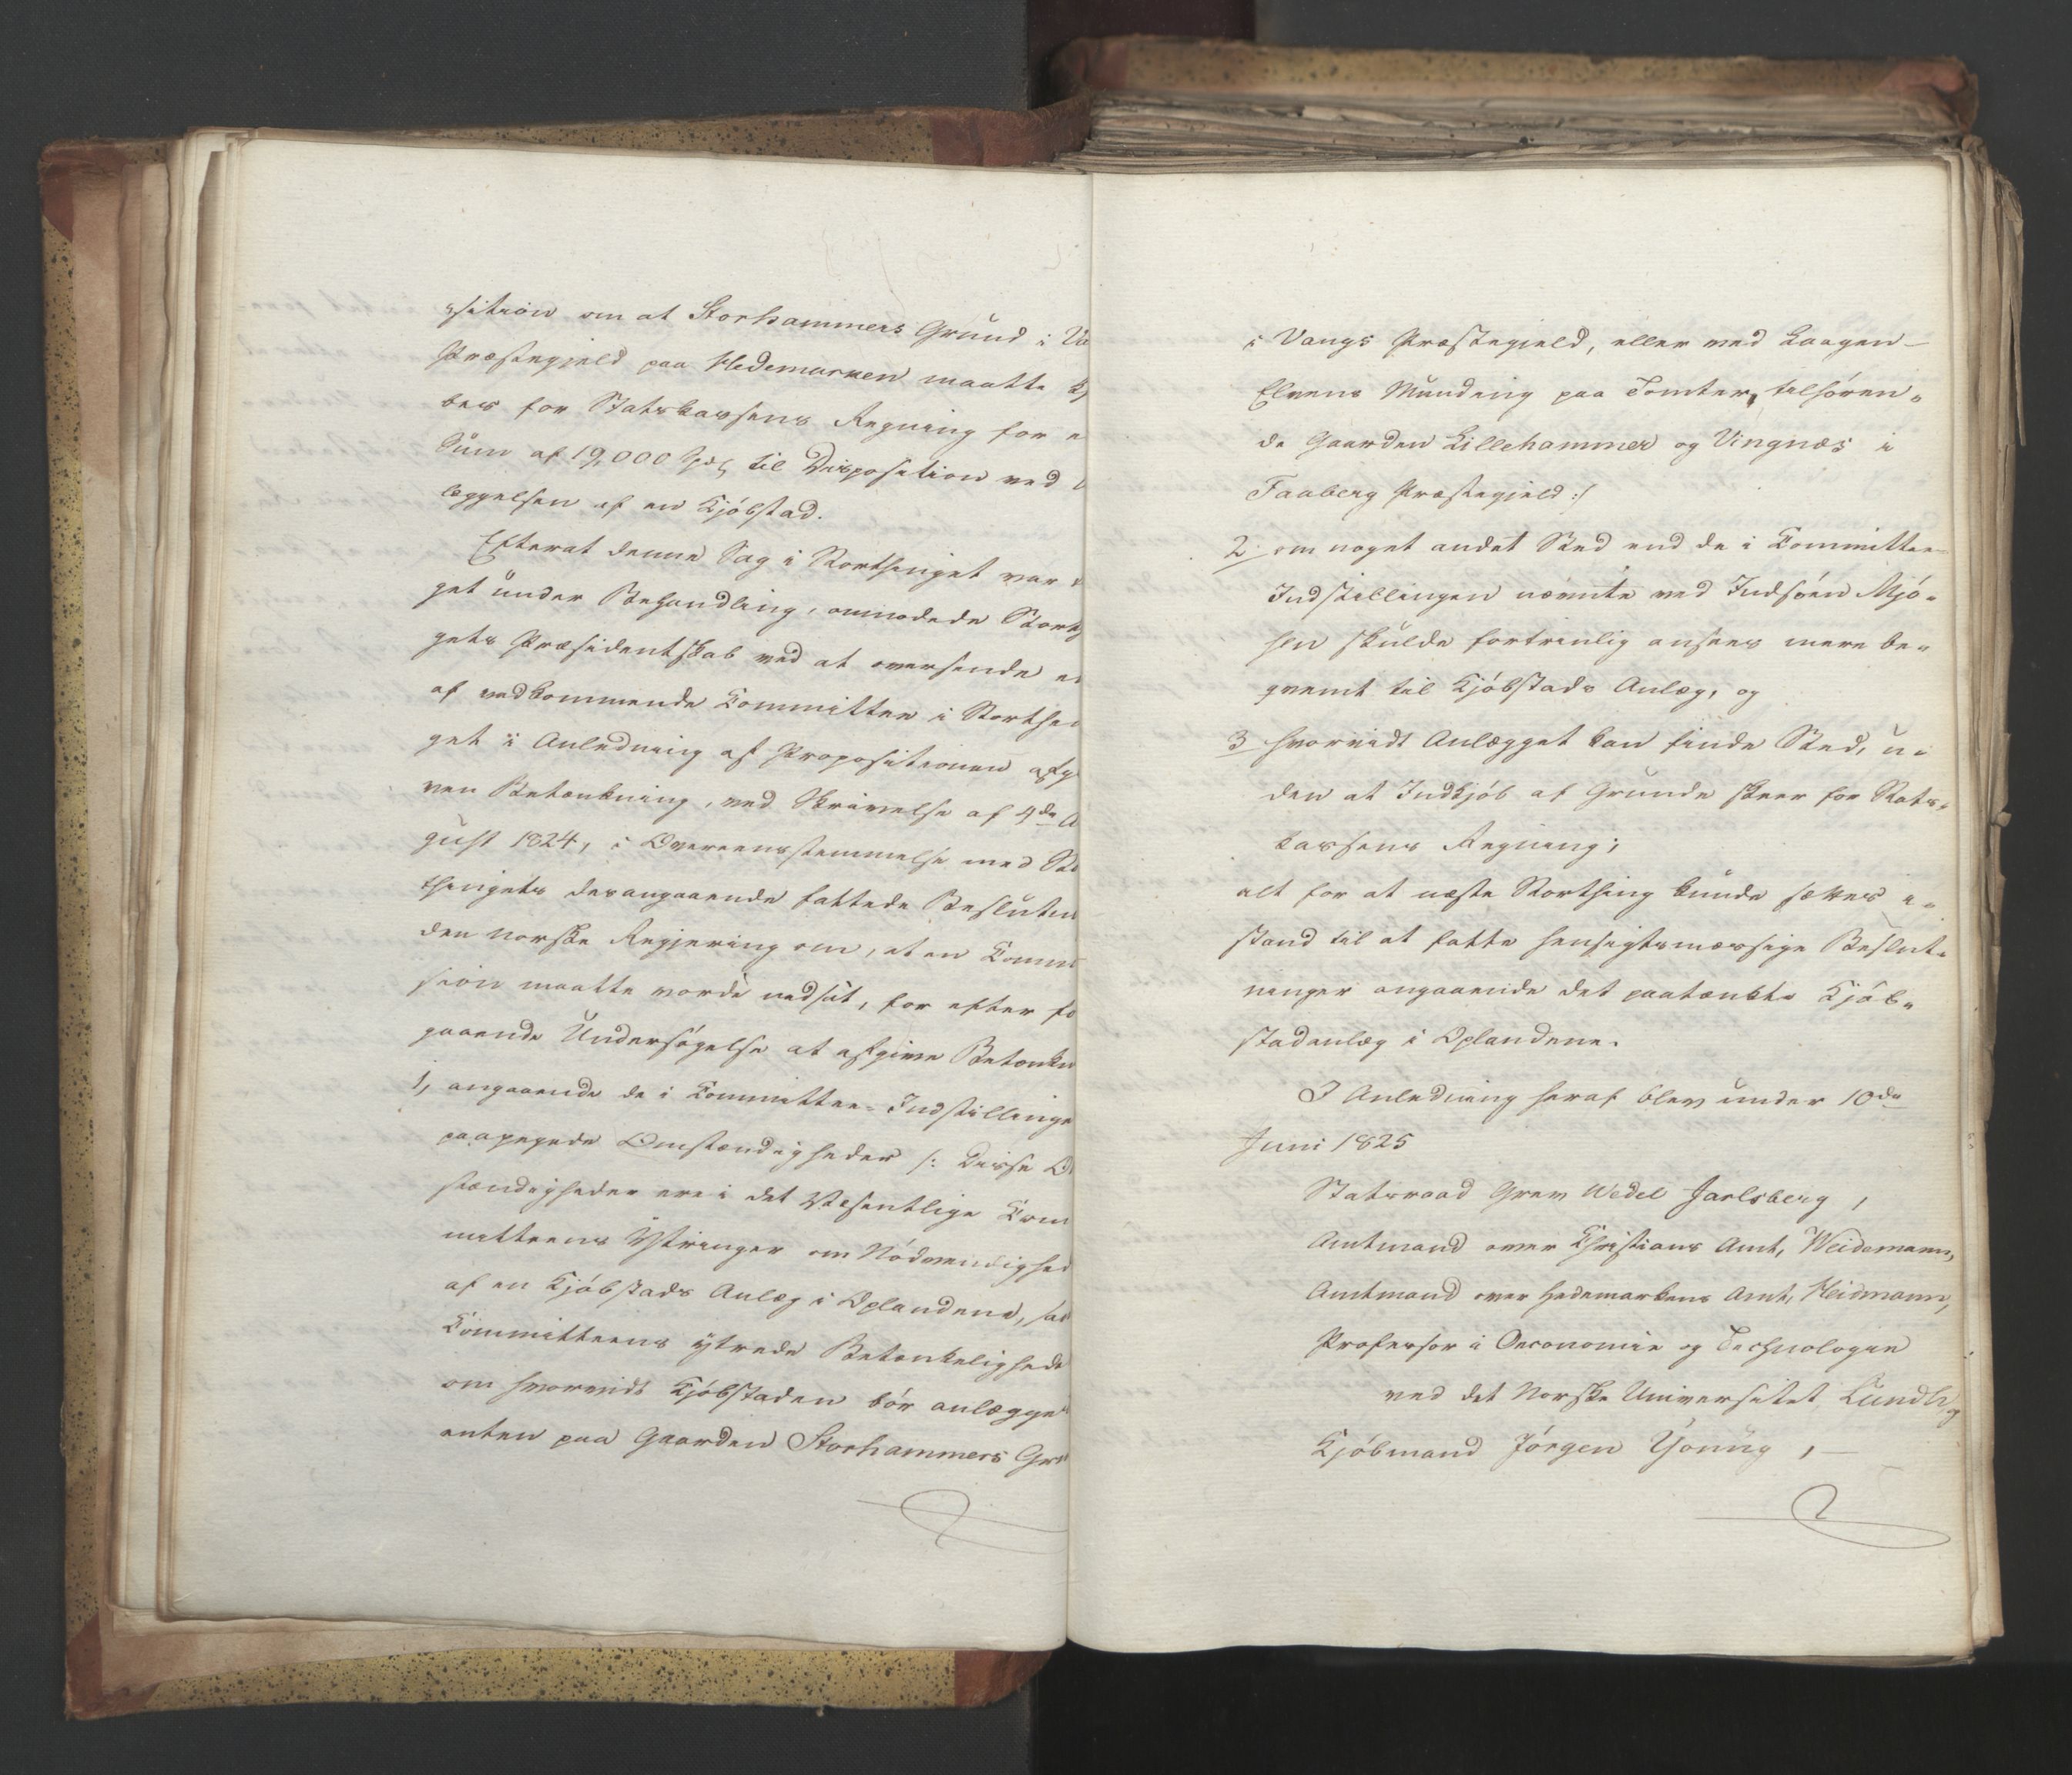 sition om at Storhammers Grund i Va
Præstegjeld paa Hedemarken maatte kj
bes for Statskassens Regning for e
Sum af 19,000 Spd, til Disposition ved
læggelsen af en Kjöbstad.
Efterat denne Sag i Storthinget var
get under Behandling, anmodede Storth
gets Præsidentskab ved at oversende e
af vedkommende Committee i Storthi
get i Anledning af Propositionen afgi
ven Betænkning, ved Skrivelse af 4de A
gust 1824, i Overeensstemmelse med Sto
thingets desangaaende fattede Beslutn
den norske Regjering om, at en Commi
sion maatte vorde nedsat, for efter fo
gaaende Undersögelse at afgive Betænkn
1, angaaende de i Committee-Indstillinge
paapegede Omstændigheder /: disse O
stændigheder ere i det Væsentlige Com
mitteens Yttringer om Nödvendighed
af en Kjöbstads Anlæg i Oplandene, sa
Committeens yttrede Betænkelighede
om hvorvidt Kjöbstaden bör anlægge
enten paa Gaarden Storhammers Gru
i Vangs Præstegjeld, eller ved Laagen-
Elvens Munding paa Tomter, tilhören-
de Gaarden Lillehammer og Vingnæs i
Faaberg Præstegjeld :/
2. om noget andet Sted end de i Committee-
Indstillingen nævnte ved Indsöen Mjö-
sen skulde fortrinlig ansees mere be-
qvemt til Kjöbstads Anlæg, og
3 hvorvidt Anlægget kan finde Sted, u-
den at Indkjöb af Grunde skeer for Stats-
kassens Regning;
alt for at næste Storthing kunde sættes i-
stand til at fatte hensigtsmæssige Beslut-
ninger angaaende det paatænkte Kjöb-
stadanlæg i Oplandene.
I Anledning heraf blev under 10de
Juni 1825
Statsraad Grev Wedel Jarlsberg,
Amtmand over Christians Amt, Weidemann,
Amtmand over Hedemarkens Amt, Heidmann,
Professor i Oeconomie og Technologie
ved det Norske Universitet, Lundh, og
Kjöbmand Jörgen Young, —